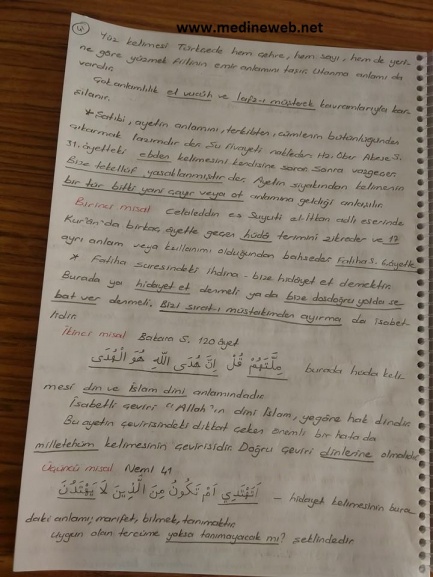 www.medineweb.net
4)
Yüz kelimesi Türkçede hem çehre, hem sayı, hem de yeri-
ne göre yüzmek fiilinin emir anlamını taşır. Utanma anlamı da
vardır.
Çok anlamlılık el vücûh ve lafz-ı müşterek kavramlarıyla kar-
şılanır.
* Şatıbi, ayetin anlamını, terkibten, cümlenin bütünlüğünden
çıkarmak lazımdır der. Şu rivayeti nakleder: Hz. Ömer Abese S.
31. ayetteki ebben kelimesini kendisine sorar. Sonra vazgeçer.
Bize tekellüf yasaklanmıştır der. Ayetin siyakından kelimenin
bir tür bitki yani çayır veya ot anlamına geldiği anlaşılır.
Birinci misal Celaleddin es Suyuti el-İtkan adlı eserinde
Kur'ân'da birbaç ayette geçen hüdâ terimini zikreder ve 17
ayrı anlam veya kullanımı olduğundan bahseder. Fatiha S. 6.ayette
* Fatiha suresindeki ihdina - bize hidayet et demektir.
Burada ya hidayet et denmeli ya da bize dosdoğru yolda se-
bat ver denmeli. Bizi sırat-ı müstakimden ayırma da isabet-
lidir.
İkinci misal Bakara S. 120 ayet
مِلَّتَهُمْ قُلْ إِنَّ هُدَى اللّٰهِ هُوَ الْهُدَى burada hüda keli-
mesi din ve İslam dini anlamındadır.
İsabetli çeviri: "Allah'ın dini İslam, yegâne hak dindir.
Bu ayetin çevirisindeki dikkat çeken önemli bir hata da
milletehüm kelimesinin çevirisidir. Doğru çeviri dinlerine olmalıdır.
Üçüncü misal Neml 41
أَتَهْتَدِي أَمْ تَكُونُ مِنَ الَّذِينَ لَا يَهْتَدُونَ - hidayet kelimesinin bura-
daki anlamı; marifet, bilmek, tanımaktır.
Uygun olan tercüme yoksa tanımayacak mı? şeklindedir.